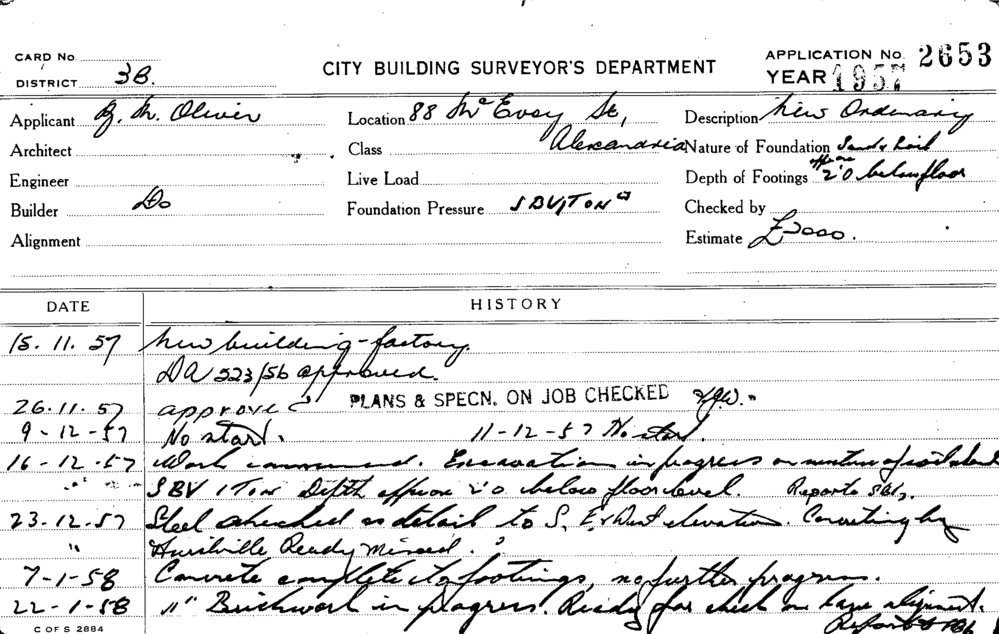 CARD No
DISTRICT 3B.
CITY BUILDING SURVEYOR'S DEPARTMENT
APPLICATION No. 2653
YEAR 1957
Applicant G. M. Oliver
Location 88 McEvoy St,
Alexandria
Description New Ordinary
Architect
Class
Nature of Foundation Sandy Soil
Engineer
Live Load
Depth of Footings approx 2'0 below floor
Builder Do
Foundation Pressure SBV 1 TON
Checked by
Alignment
Estimate £2000.
DATE HISTORY
15.11.57 New building - factory.
DA 523/56 approved.
26.11.57 approved PLANS & SPECN. ON JOB CHECKED
9-12-57 No start. 11-12-57 No start.
16-12-57 Work commenced. Excavations in progress on
SBV 1 TON Depth approx 2'0 below floor level. Reports
23-12-57 Steel checked as detail to S, E & West elevation. Concreting by
" Hurstville Ready Mixed.
7-1-58 Concrete complete to footings, no further progress.
22-1-58 " Brickwork in progress. Ready for check on alignment.
Report to
C OF S 2884